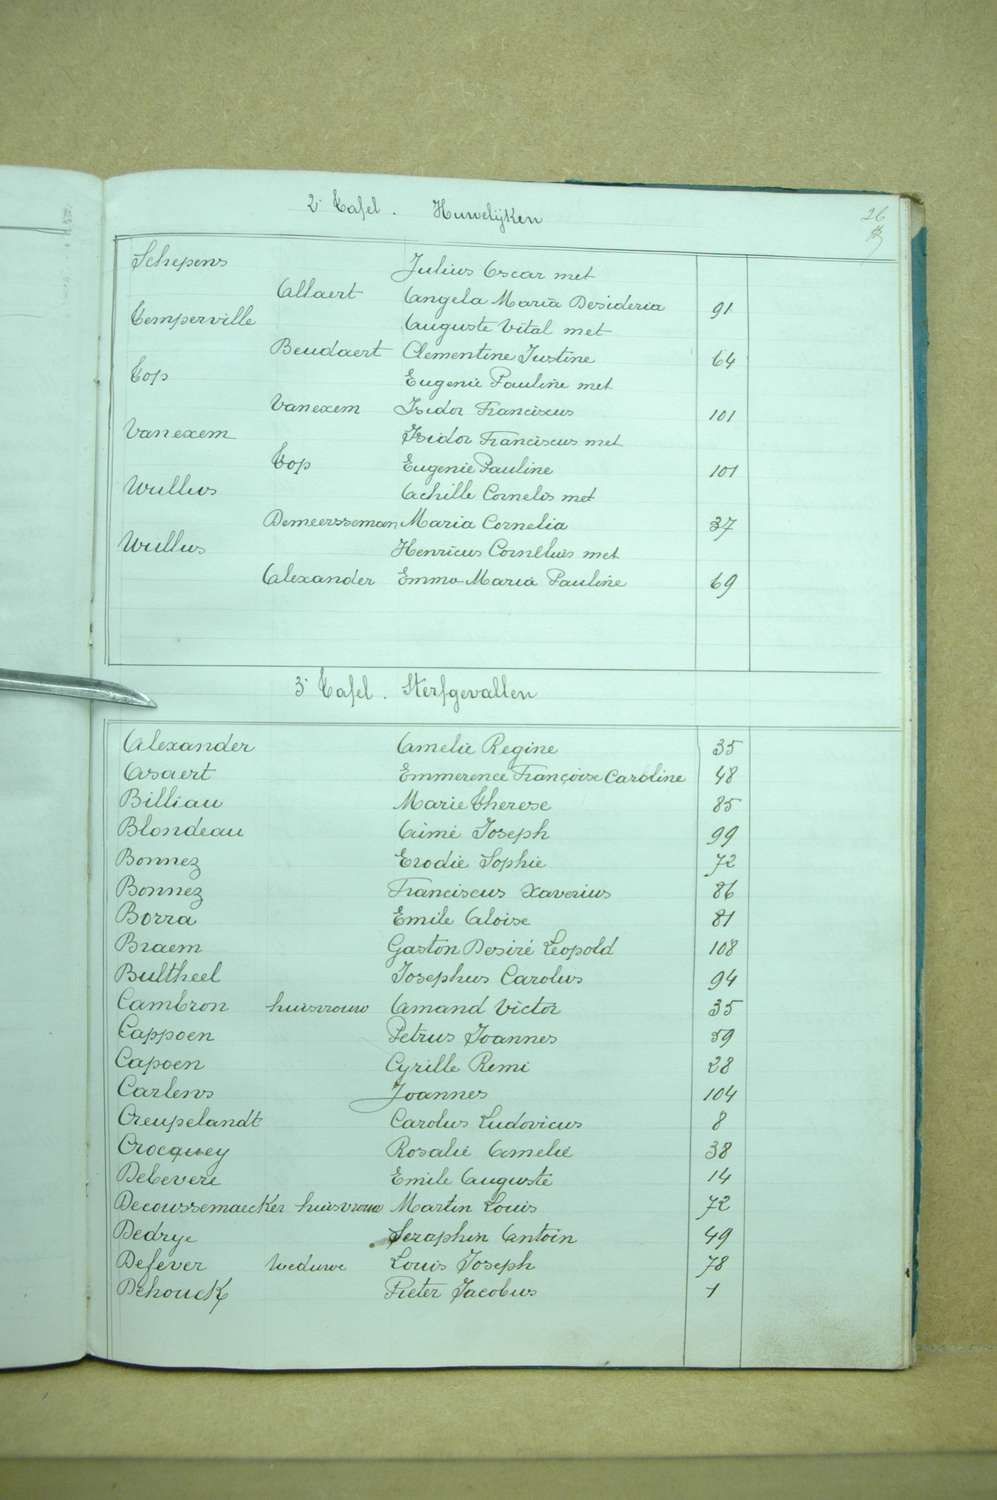 26
2e Tafel. Huwelijken
Schepens Julius Oscar met
Allaert Angela Maria Desideria 91
Temperville Auguste Vital met
Beudaert Clementine Justine 64
Top Eugenie Pauline met
Vanexem Isidor Franciscus 101
Vanexem Isidor Franciscus met
Top Eugenie Pauline 101
Wullus Achille Cornelis met
Demeersseman Maria Cornelia 37
Wullus Henricus Cornelius met
Alexander Emma Maria Pauline 69
3e Tafel. Sterfgevallen
Alexander Amelie Regine 35
Asaert Emmerence Françoise Caroline 48
Billiau Marie Therese 85
Blondeau Aimé Joseph 99
Bonnez Elodie Sophie 72
Bonnez Franciscus Xaverius 86
Borra Emile Aloise 81
Braem Gaston Desiré Leopold 108
Bultheel Josephus Carolus 94
Cambron huisvrouw Amand Victor 35
Cappoen Petrus Joannes 59
Capoen Cyrille Remi 28
Carlens Joannes 104
Creupelandt Carolus Ludovicus 8
Crocquey Rosalie Amelie 38
Debevere Emile Auguste 14
Decoussemaecker huisvrouw Martin Louis 72
Dedrye Seraphin Antoin 49
Defever weduwe Louis Joseph 78
Dehouck Pieter Jacobus 1